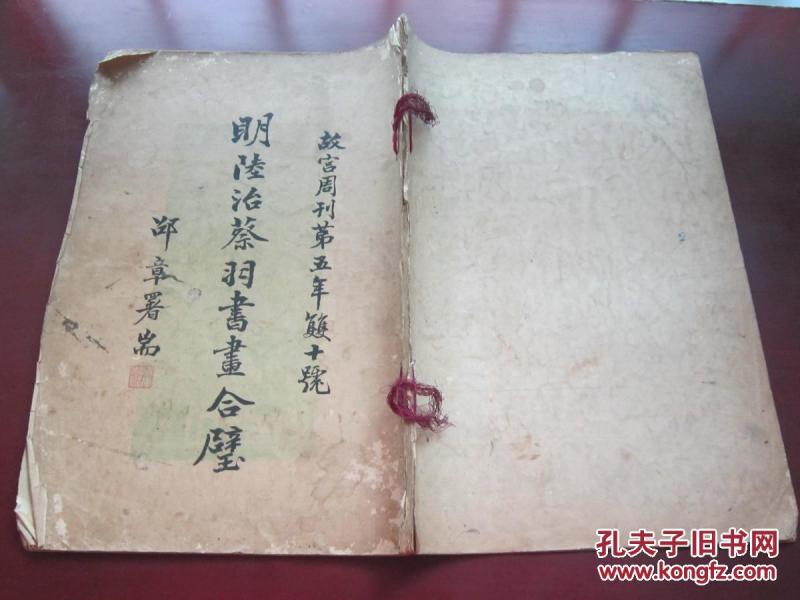 故宫周刊第五年雙十號
明陸治蔡羽書畫合璧
邵章署耑
孔夫子旧书网
www.kongfz.com